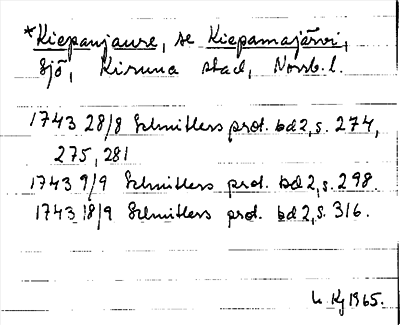 *Kiepanjaure, se Kiepamajärvi,
sjö, Kiruna stad, Norrb. l.
1743 28/8 Schnitlers prot. bd 2, s. 274,
275, 281
1743 9/9 Schnitlers prot. bd 2, s. 298
1743 18/9 Schnitlers prot. bd 2, s. 316.
Kj 1965.